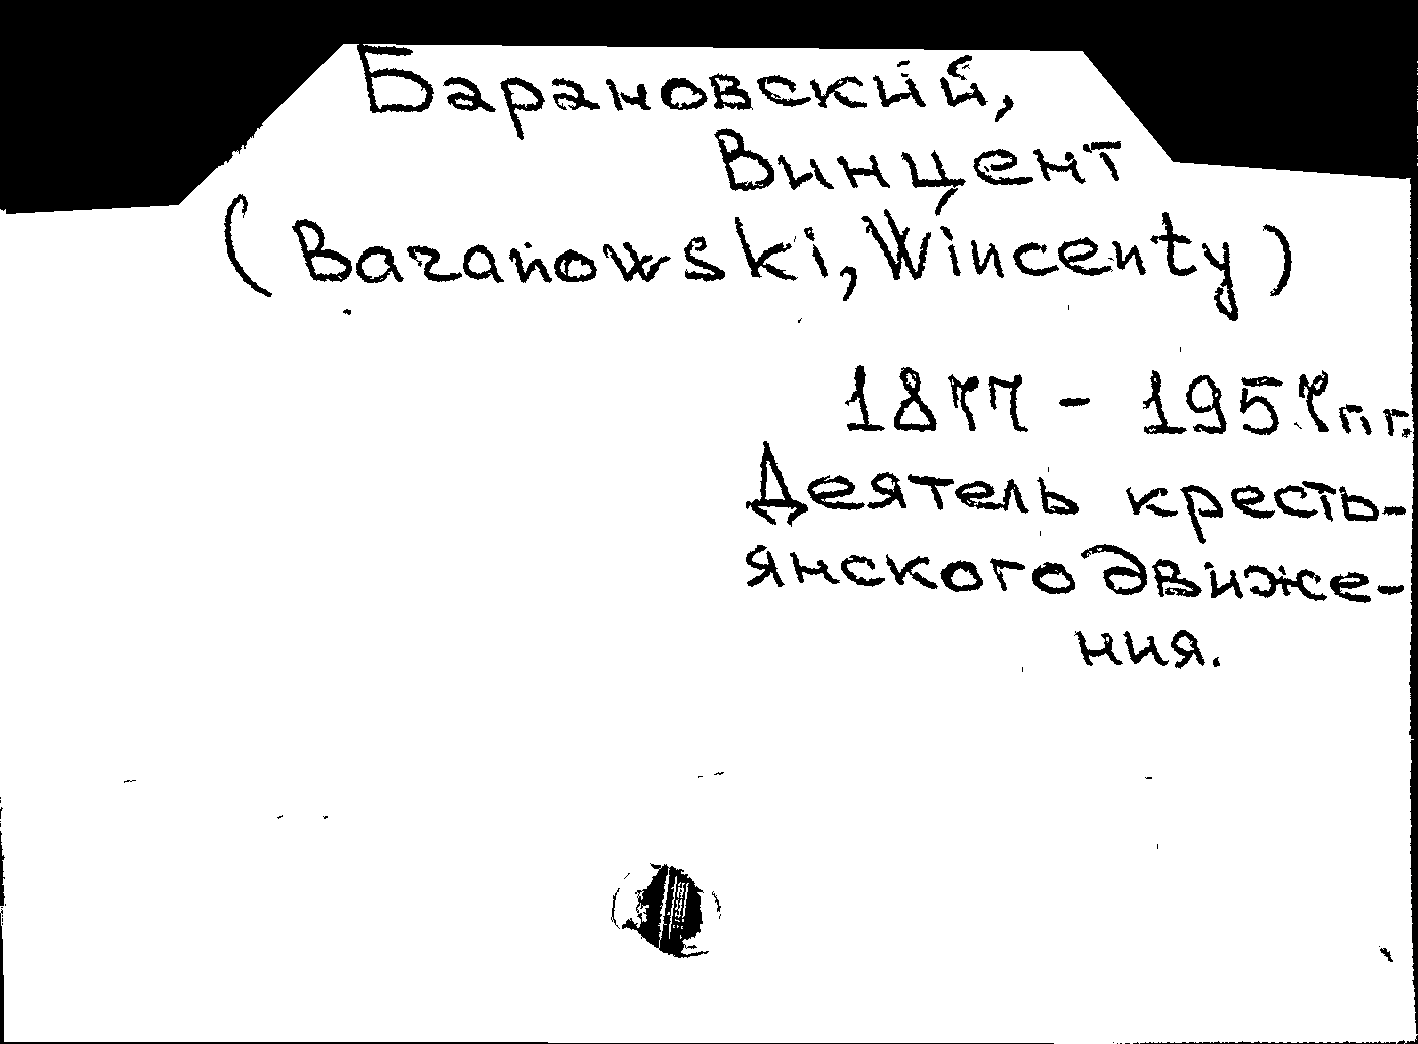 Барановский,
Винцент
(Baranowski, Wincenty)
1877 - 1957 гг.
Деятель кресть-
янского движе-
ния.